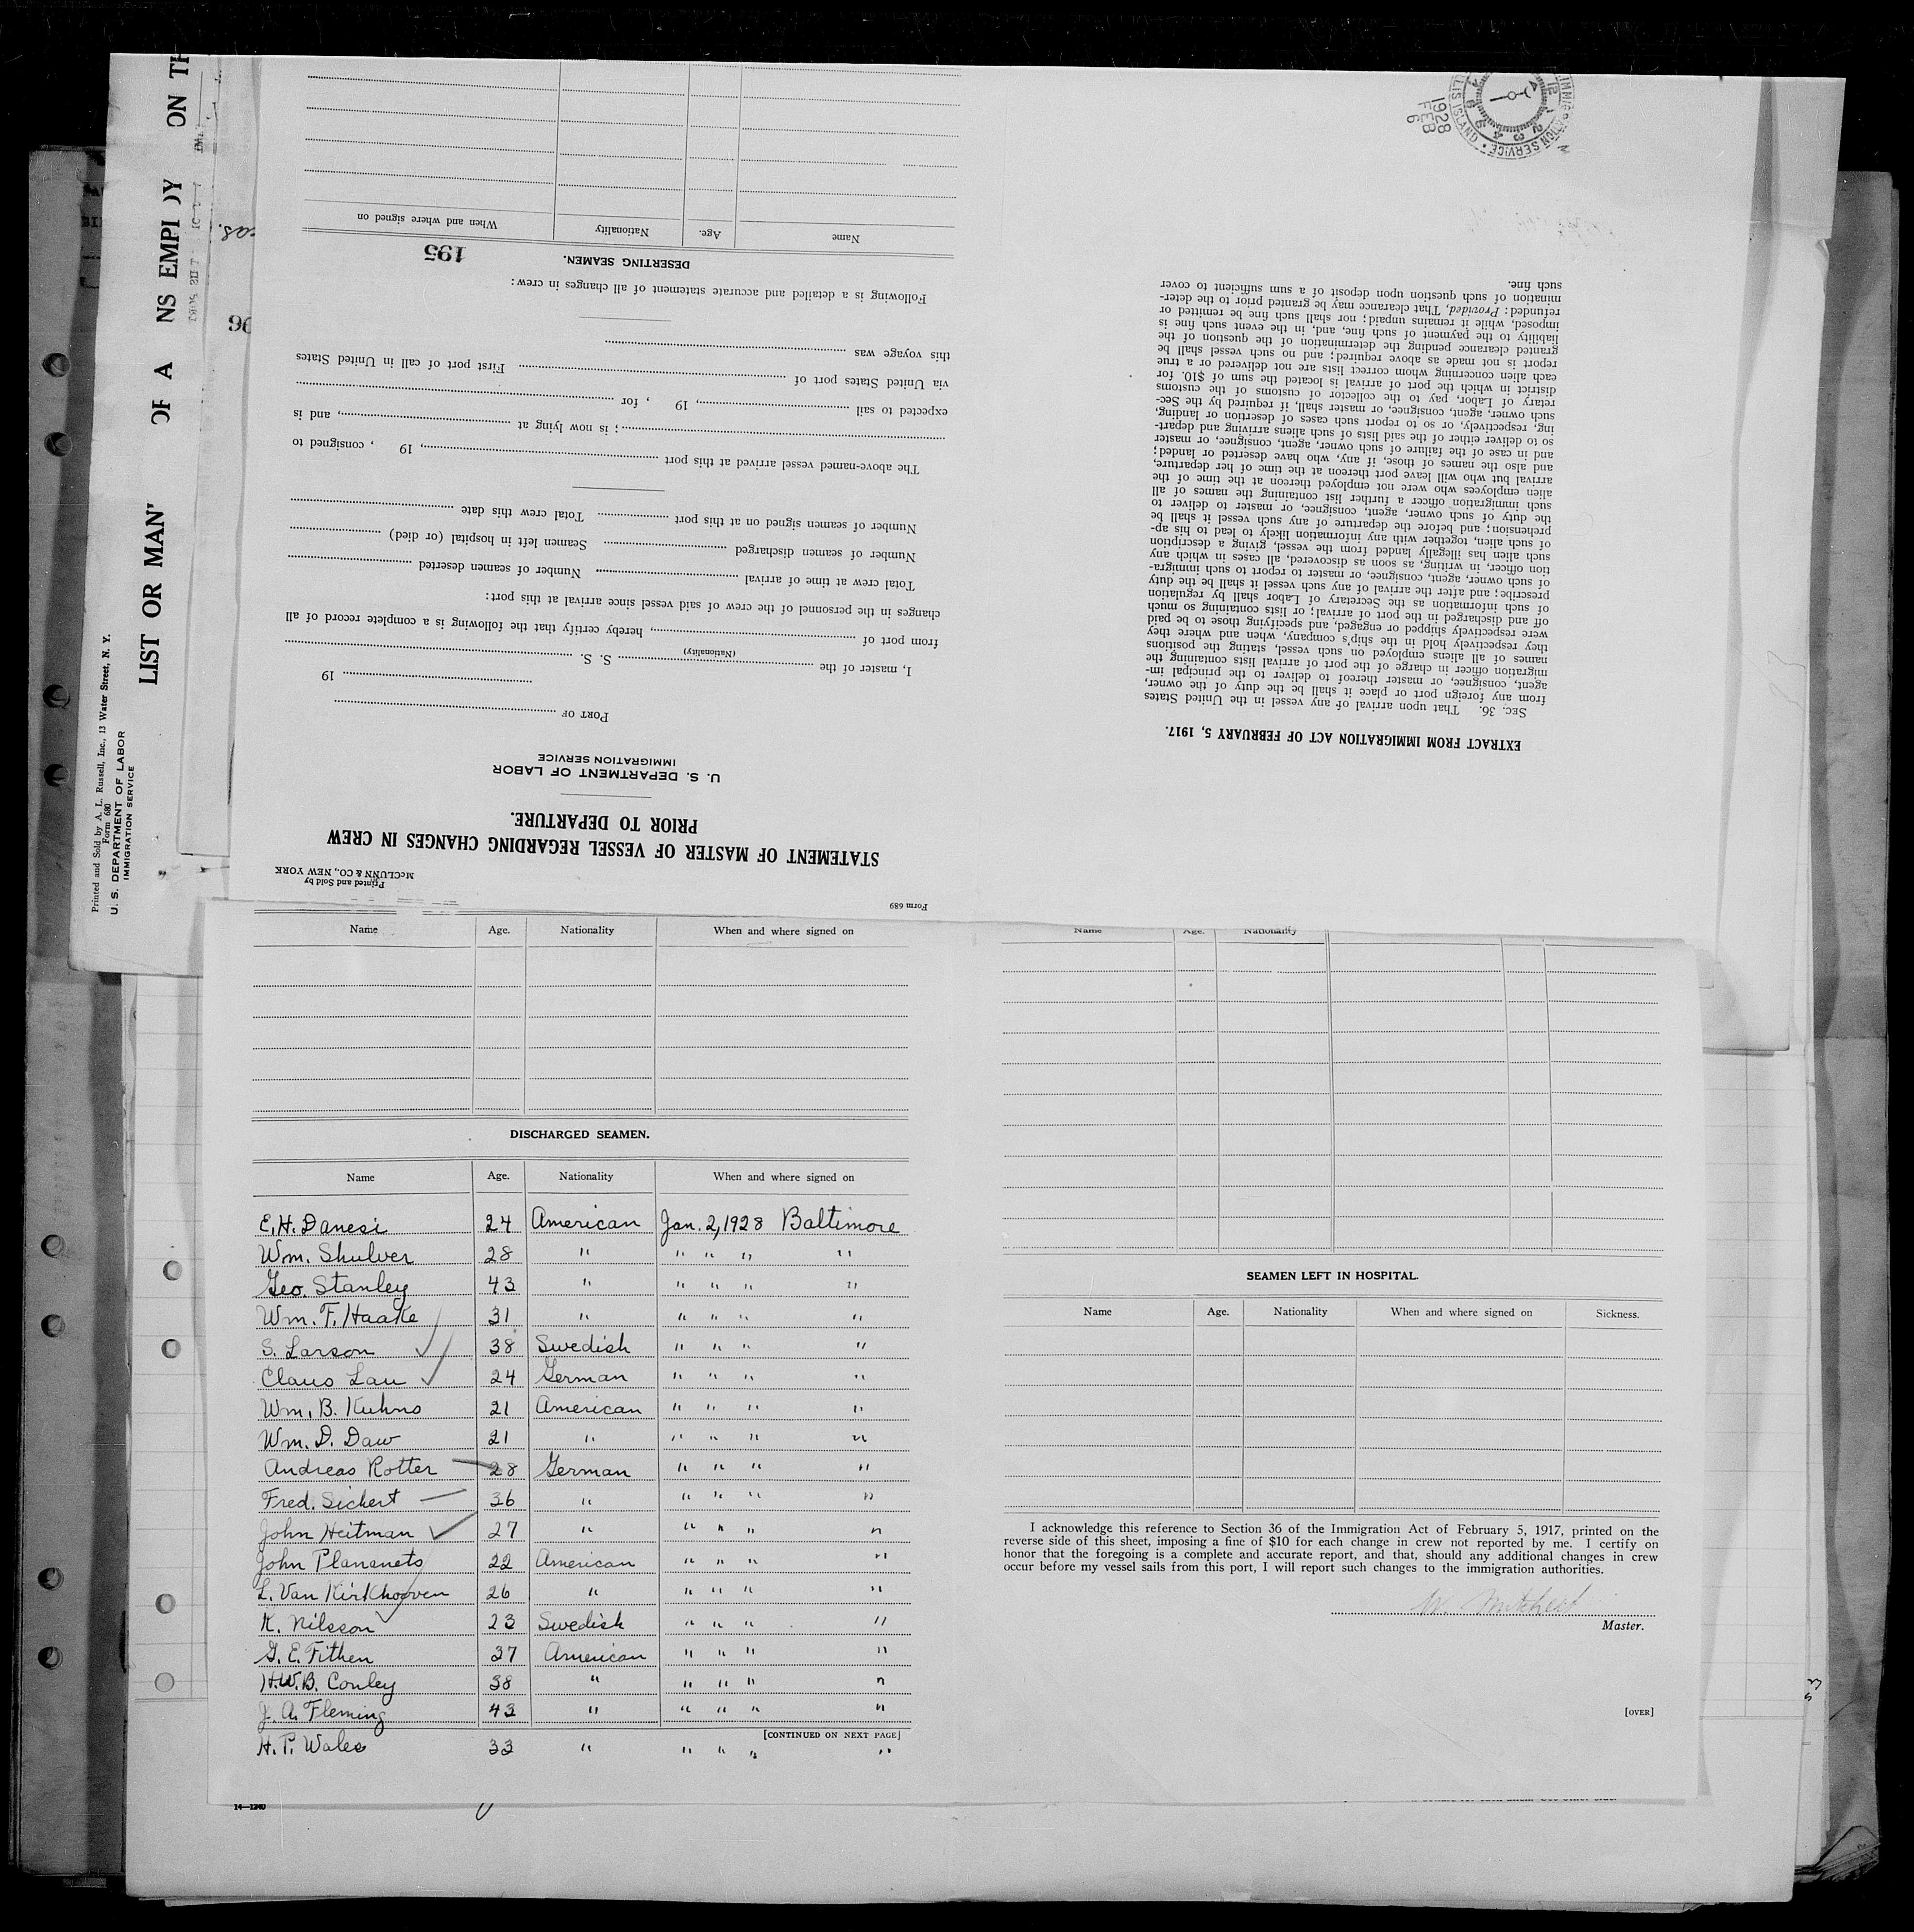 Printed and Sold by A. L. Russell, Inc., 13 Water Street, N. Y.
Form 680
U. S. DEPARTMENT OF LABOR
IMMIGRATION SERVICE
LIST OR MAN
OF A NS EMPL OY ON TH
96
IMMIGRATION SERVICE • ELLIS ISLAND
1928
FEB
6
Form 689
Printed and Sold by
McCLUNN & CO., NEW YORK
STATEMENT OF MASTER OF VESSEL REGARDING CHANGES IN CREW
PRIOR TO DEPARTURE.
U. S. DEPARTMENT OF LABOR
IMMIGRATION SERVICE
PORT OF
19
I, master of the (Nationality) S. S.
from port of , hereby certify that the following is a complete record of all
changes in the personnel of the crew of said vessel since arrival at this port:
Total crew at time of arrival Number of seamen deserted
Number of seamen discharged Seamen left in hospital (or died)
Number of seamen signed on at this port Total crew this date
The above-named vessel arrived at this port , 19 , consigned to
; is now lying at , and is
expected to sail , 19 , for
via United States port of First port of call in United States
this voyage was
Following is a detailed and accurate statement of all changes in crew:
DESERTING SEAMEN.
195
Name Age. Nationality When and where signed on
EXTRACT FROM IMMIGRATION ACT OF FEBRUARY 5, 1917.
SEC. 36. That upon arrival of any vessel in the United States
from any foreign port or place it shall be the duty of the owner,
agent, consignee, or master thereof to deliver to the principal im-
migration officer in charge of the port of arrival lists containing the
names of all aliens employed on such vessel, stating the positions
they respectively hold in the ship's company, when and where they
were respectively shipped or engaged, and specifying those to be paid
off and discharged in the port of arrival; or lists containing so much
of such information as the Secretary of Labor shall by regulation
prescribe; and after the arrival of any such vessel it shall be the duty
of such owner, agent, consignee, or master to report to such immigra-
tion officer, in writing, as soon as discovered, all cases in which any
such alien has illegally landed from the vessel, giving a description
of such alien, together with any information likely to lead to his ap-
prehension; and before the departure of any such vessel it shall be
the duty of such owner, agent, consignee, or master to deliver to
such immigration officer a further list containing the names of all
alien employees who were not employed thereon at the time of the
arrival but who will leave port thereon at the time of her departure,
and also the names of those, if any, who have deserted or landed;
and in case of the failure of such owner, agent, consignee, or master
so to deliver either of the said lists of such aliens arriving and depart-
ing, respectively, or so to report such cases of desertion or landing,
such owner, agent, consignee, or master shall, if required by the Sec-
retary of Labor, pay to the collector of customs of the customs
district in which the port of arrival is located the sum of $10. for
each alien concerning whom correct lists are not delivered or a true
report is not made as above required; and no such vessel shall be
granted clearance pending the determination of the question of the
liability to the payment of such fine, and, in the event such fine is
imposed, while it remains unpaid; nor shall such fine be remitted or
refunded: Provided, That clearance may be granted prior to the deter-
mination of such question upon deposit of a sum sufficient to cover
such fine.
Name Age. Nationality When and where signed on
DISCHARGED SEAMEN.
Name Age. Nationality When and where signed on
E. H. Danesi 24 American Jan. 2, 1928 Baltimore
Wm. Shulver 28 " " " " "
Geo. Stanley 43 " " " " "
Wm. F. Haake 31 " " " " "
S. Larson 38 Swedish " " " "
Claus Lau 24 German " " " "
Wm. B. Kuhns 21 American " " " "
Wm. D. Daw 21 " " " " "
Andreas Rotter 28 German " " " "
Fred. Sickert 36 " " " " "
John Heitman 27 " " " " "
John Plananeto 22 American " " " "
L. Van Kirkhooven 26 " " " " "
K. Nilsson 23 Swedish " " " "
G. E. Fithen 37 American " " " "
H.W.B. Conley 38 " " " " "
J. A. Fleming 43 " " " " "
[CONTINUED ON NEXT PAGE]
H. P. Wales 33 " " " " "
14—1240
Name Age. Nationality
SEAMEN LEFT IN HOSPITAL.
Name Age. Nationality When and where signed on Sickness.
I acknowledge this reference to Section 36 of the Immigration Act of February 5, 1917, printed on the
reverse side of this sheet, imposing a fine of $10 for each change in crew not reported by me. I certify on
honor that the foregoing is a complete and accurate report, and that, should any additional changes in crew
occur before my vessel sails from this port, I will report such changes to the immigration authorities.
Master.
[OVER]